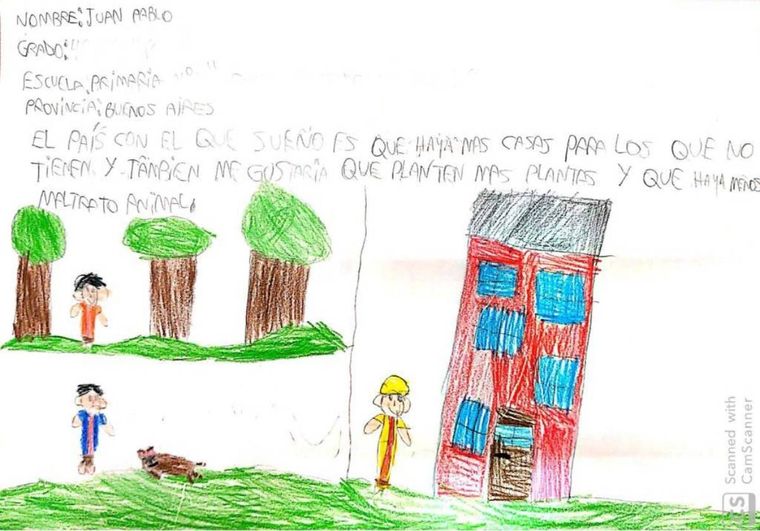 NOMBRE: JUAN PABLO
GRADO:
ESCUELA PRIMARIA
PROVINCIA: BUENOS AIRES
EL PAÍS CON EL QUE SUEÑO ES QUE HAYA MAS CASAS PARA LOS QUE NO
TIENEN Y TAMBIEN ME GUSTARIA QUE PLANTEN MAS PLANTAS Y QUE HAYA MENOS
MALTRATO ANIMAL.
Scanned with
CamScanner
CS